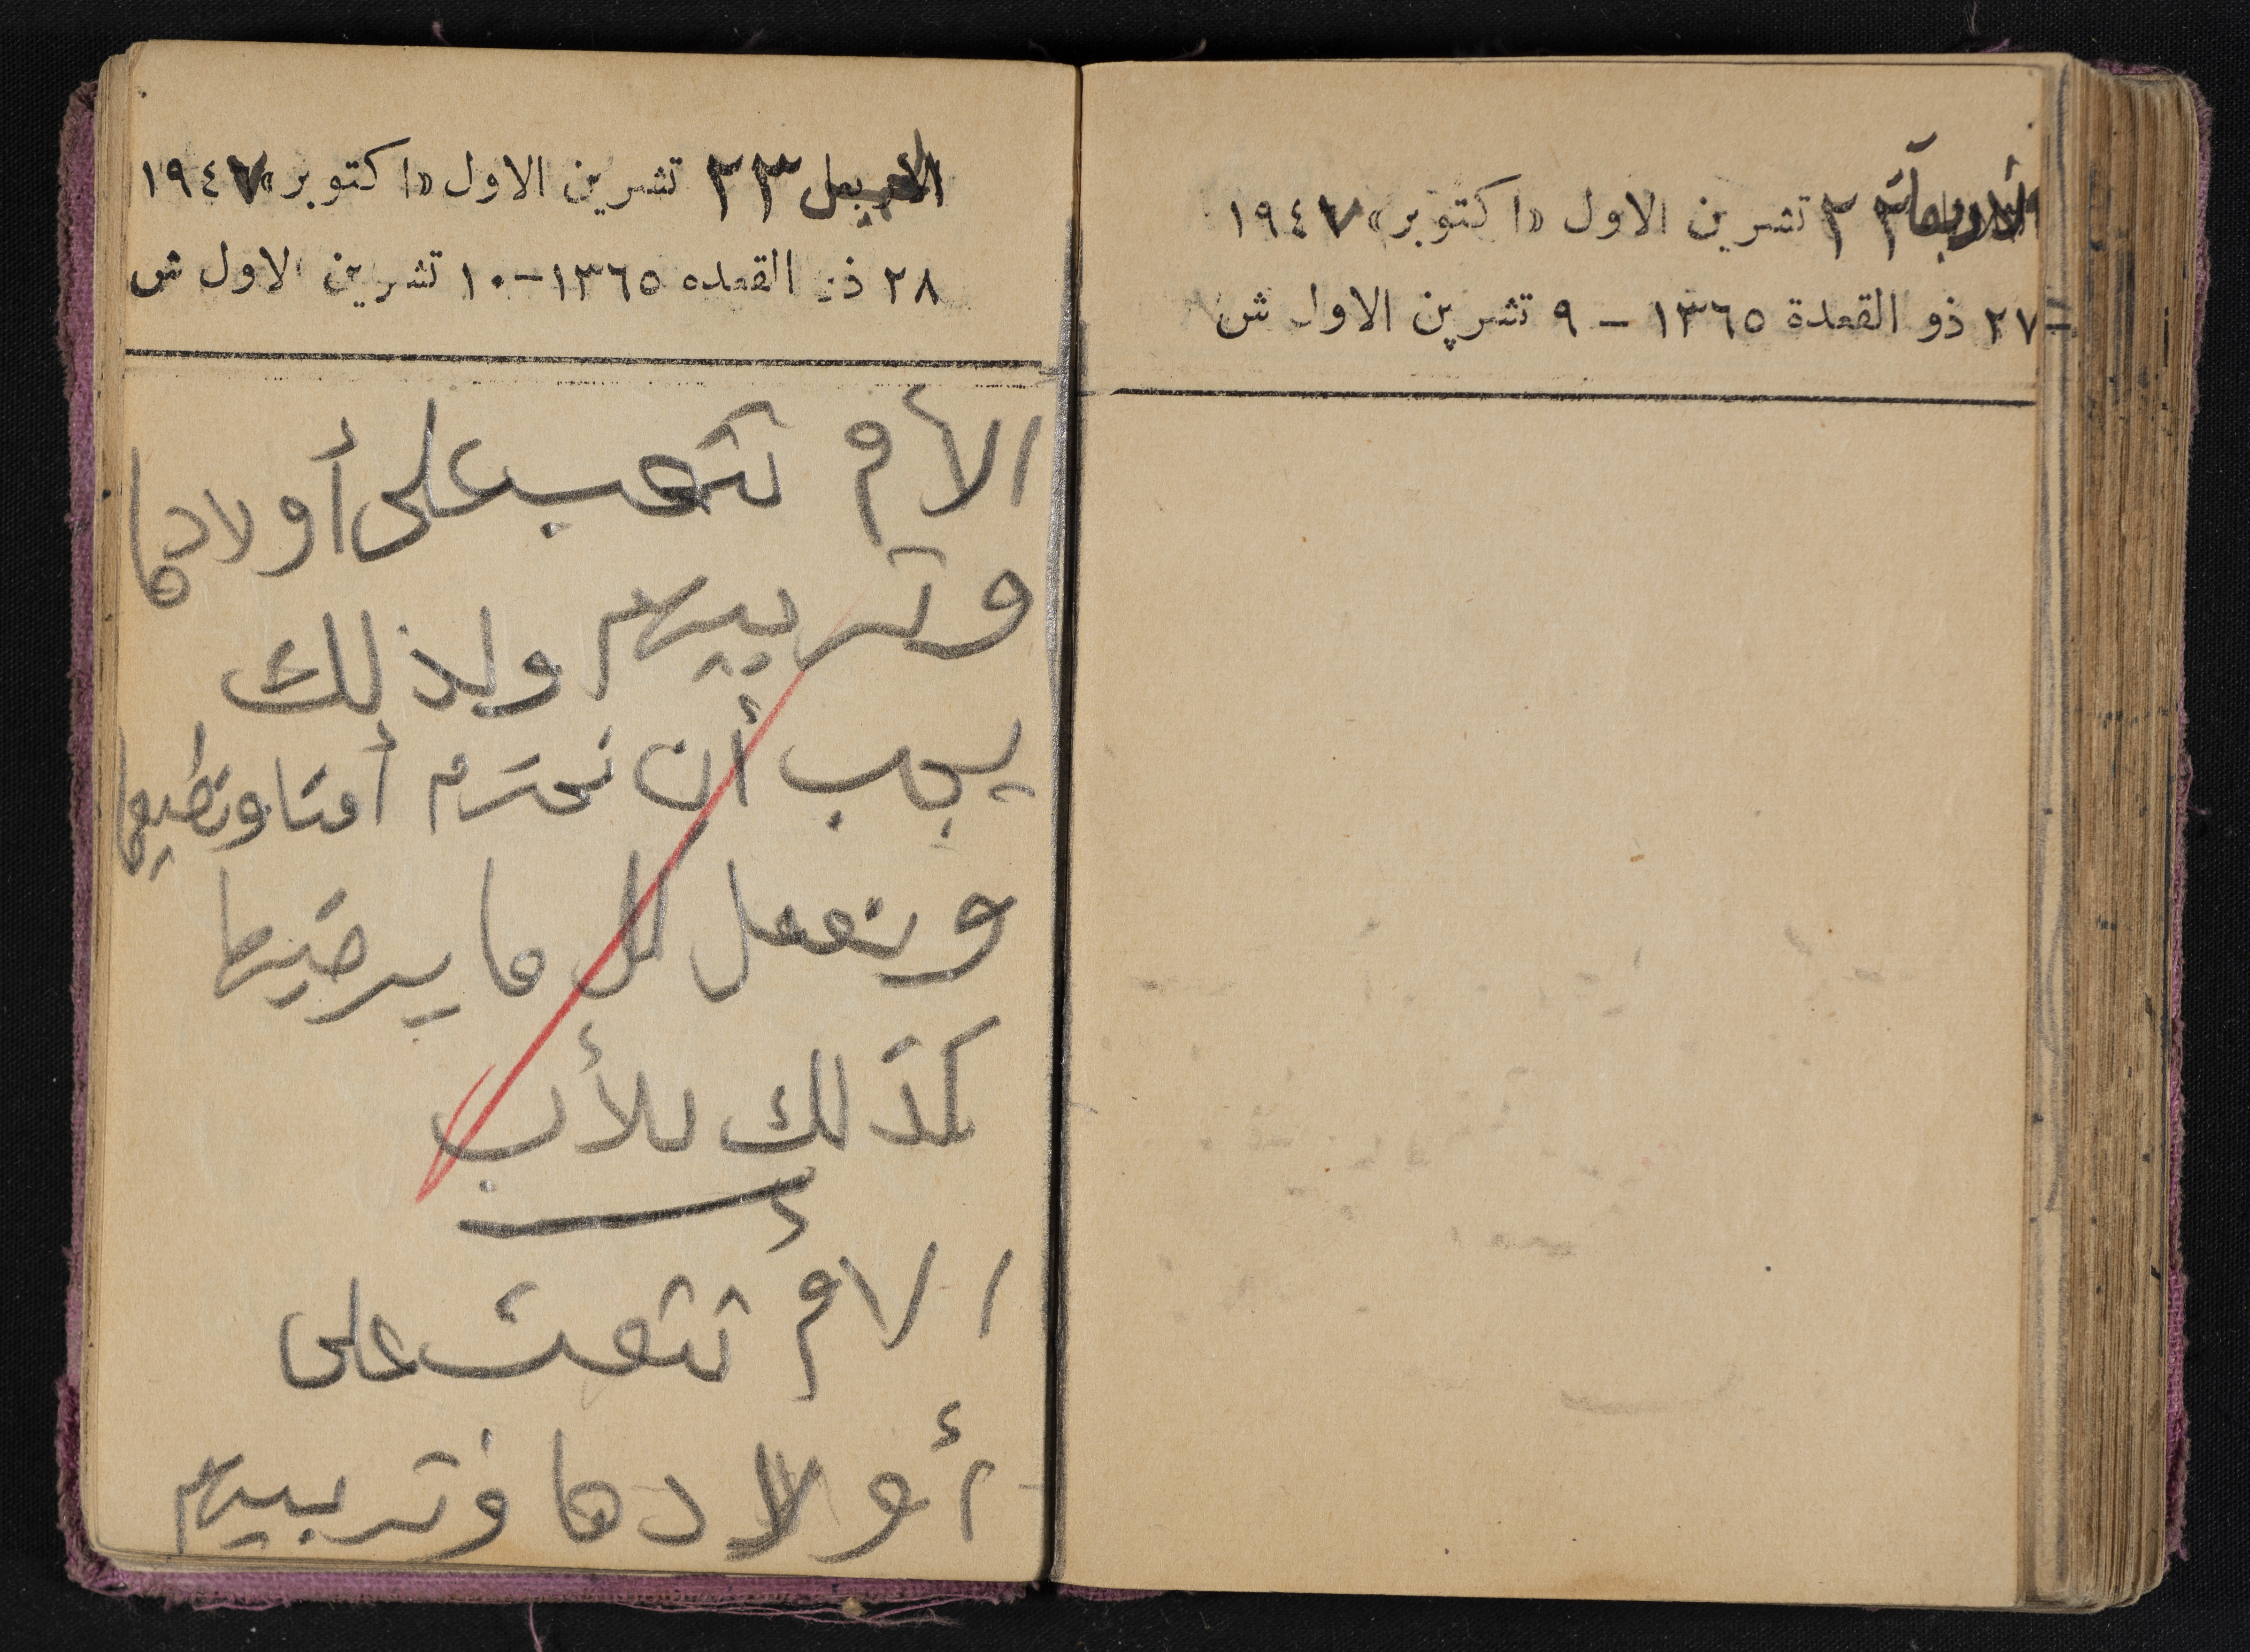 الأربعاء ٢٢ تشرين الاول «اكتوبر» ١٩٤٧
٢٧ ذو القعدة ١٣٦٥ — ٩ تشرين الاول ش
٢٣ تشرين الاول «اكتوبر» ١٩٤٧
٢٨ ذو القعده ١٣٦٥ — ١٠ تشرين الاول ش
الأم تتعب على أولادها
وتربيهم ولذلك
يجب أن نحترم أمنا ونطيعها
ونعمل كل ما يرضيها
كذلك للأب
الأم تتعب على
أولادها وتربيهم